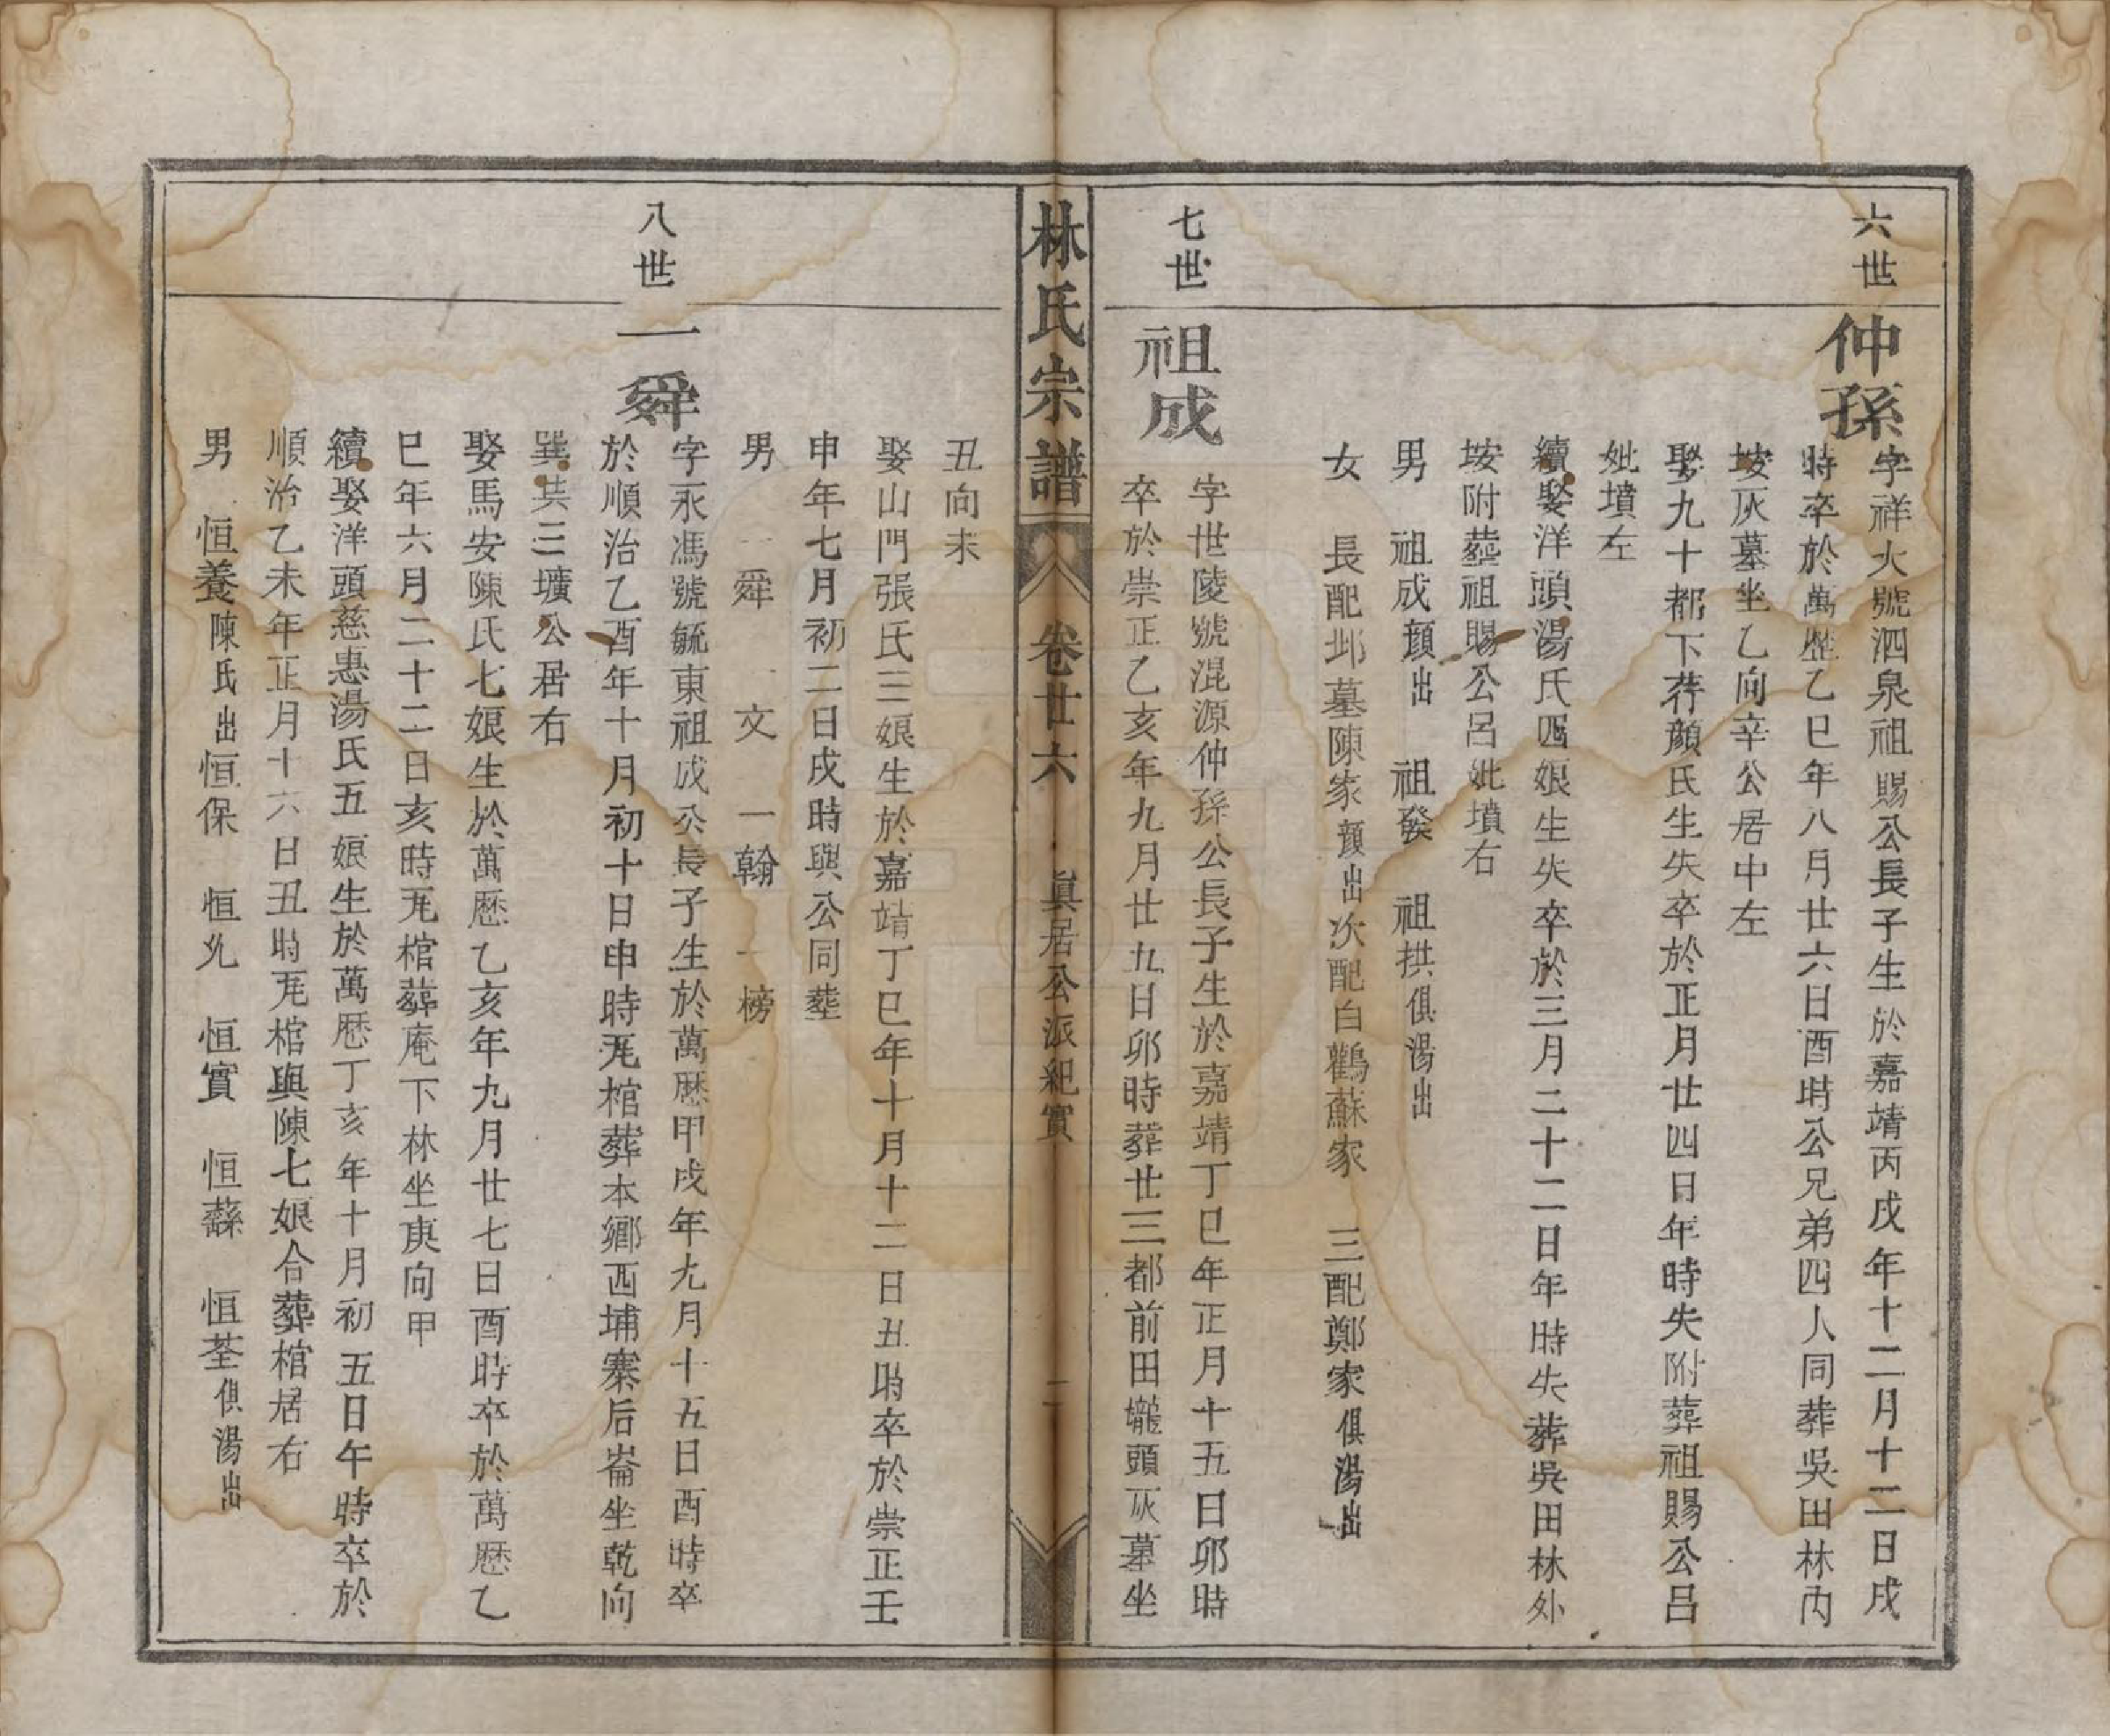 六世
仲孫
字祥火號泗泉祖賜公長子生於嘉靖丙戌年十二月十二日戌
時卒於萬歷乙巳年八月廿六日酉時公兄弟四人同葬吳田林内
垵灰墓坐乙向辛公居中左
娶九十都下荐顔氏生失卒於正月廿四日年時失附葬祖賜公呂
妣墳左
續娶洋頭湯氏四娘生失卒於三月二十二日年時失葬吳田林外
垵附塟祖賜公呂妣墳右
男 祖成顔出 祖發 祖拱俱湯出
女 長配邺墓陳家顔出次配白鸛蘇家 三配鄭家俱湯出
七世
祖成
字世陵號混源仲孫公長子生於嘉靖丁巳年正月十五日卯時
卒於崇正乙亥年九月廿九日卯時葬廿三都前田壠頭灰墓坐
林氏宗譜 卷廿六 眞居公派紀實 二
丑向未
娶山門張氏三娘生於嘉靖丁巳年十月十二日丑時卒於崇正壬
申年七月初二日戌時與公同塟
男 一舜 文 一翰 一榜
八世
一舜
字永馮號毓東祖成公長子生於萬歷甲戌年九月十五日酉時卒
於順治乙酉年十月初十日申時旡棺葬本鄉西埔寨后崙坐乾向
巽共三壙公居右
娶馬安陳氏七娘生於萬歷乙亥年九月廿七日酉時卒於萬歷乙
巳年六月二十二日亥時旡棺葬庵下林坐庚向甲
續娶洋頭慈惠湯氏五娘生於萬歷丁亥年十月初五日午時卒於
順治乙未年正月十六日丑時旡棺與陳七娘合葬棺居右
男 恒養陳氏出恒保 恒允 恒實 恒蘇 恒荃俱湯出